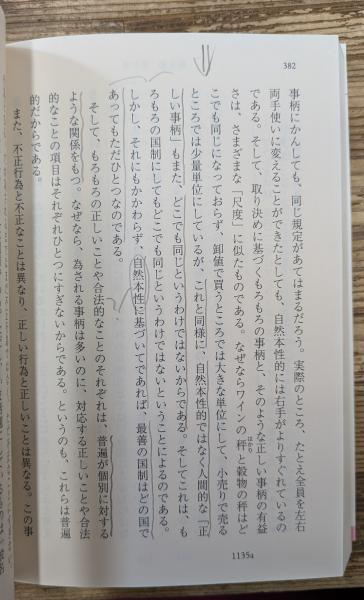 382
事柄にかんしても、同じ規定があてはまるだろう。実際のところ、たとえ全員を左右
両手使いに変えることができたとしても、自然本性的には右手がよりすぐれているの
である。そして、取り決めに基づくもろもろの事柄と、そのような正しい事柄の有益
さは、さまざまな「尺度」に似たものである。なぜならワインの秤と穀物の秤はど
はかり
こでも同じになっておらず、卸値で買うところでは大きな単位にして、小売りで売る
ところでは少量単位にしているが、これと同様に、自然本性的ではなく人間的な「正
しい事柄」もまた、どこでも同じというわけではないからである。そしてこれは、も
ろもろの国制にしてもどこでも同じというわけではないということによるのである。
しかし、それにもかかわらず、自然本性に基づいてであれば、最善の国制はどの国で
あってもただひとつなのである。
そして、もろもろの正しいことや合法的なことのそれぞれは、普遍が個別に対する
ような関係をもつ。なぜなら、為される事柄は多いのに、対応する正しいことや合法
的なことの項目はそれぞれひとつにすぎないからである。というのも、これらは普遍
的だからである。
また、不正行為と不正なことは異なり、正しい行為と正しいことは異なる。この事
1135a